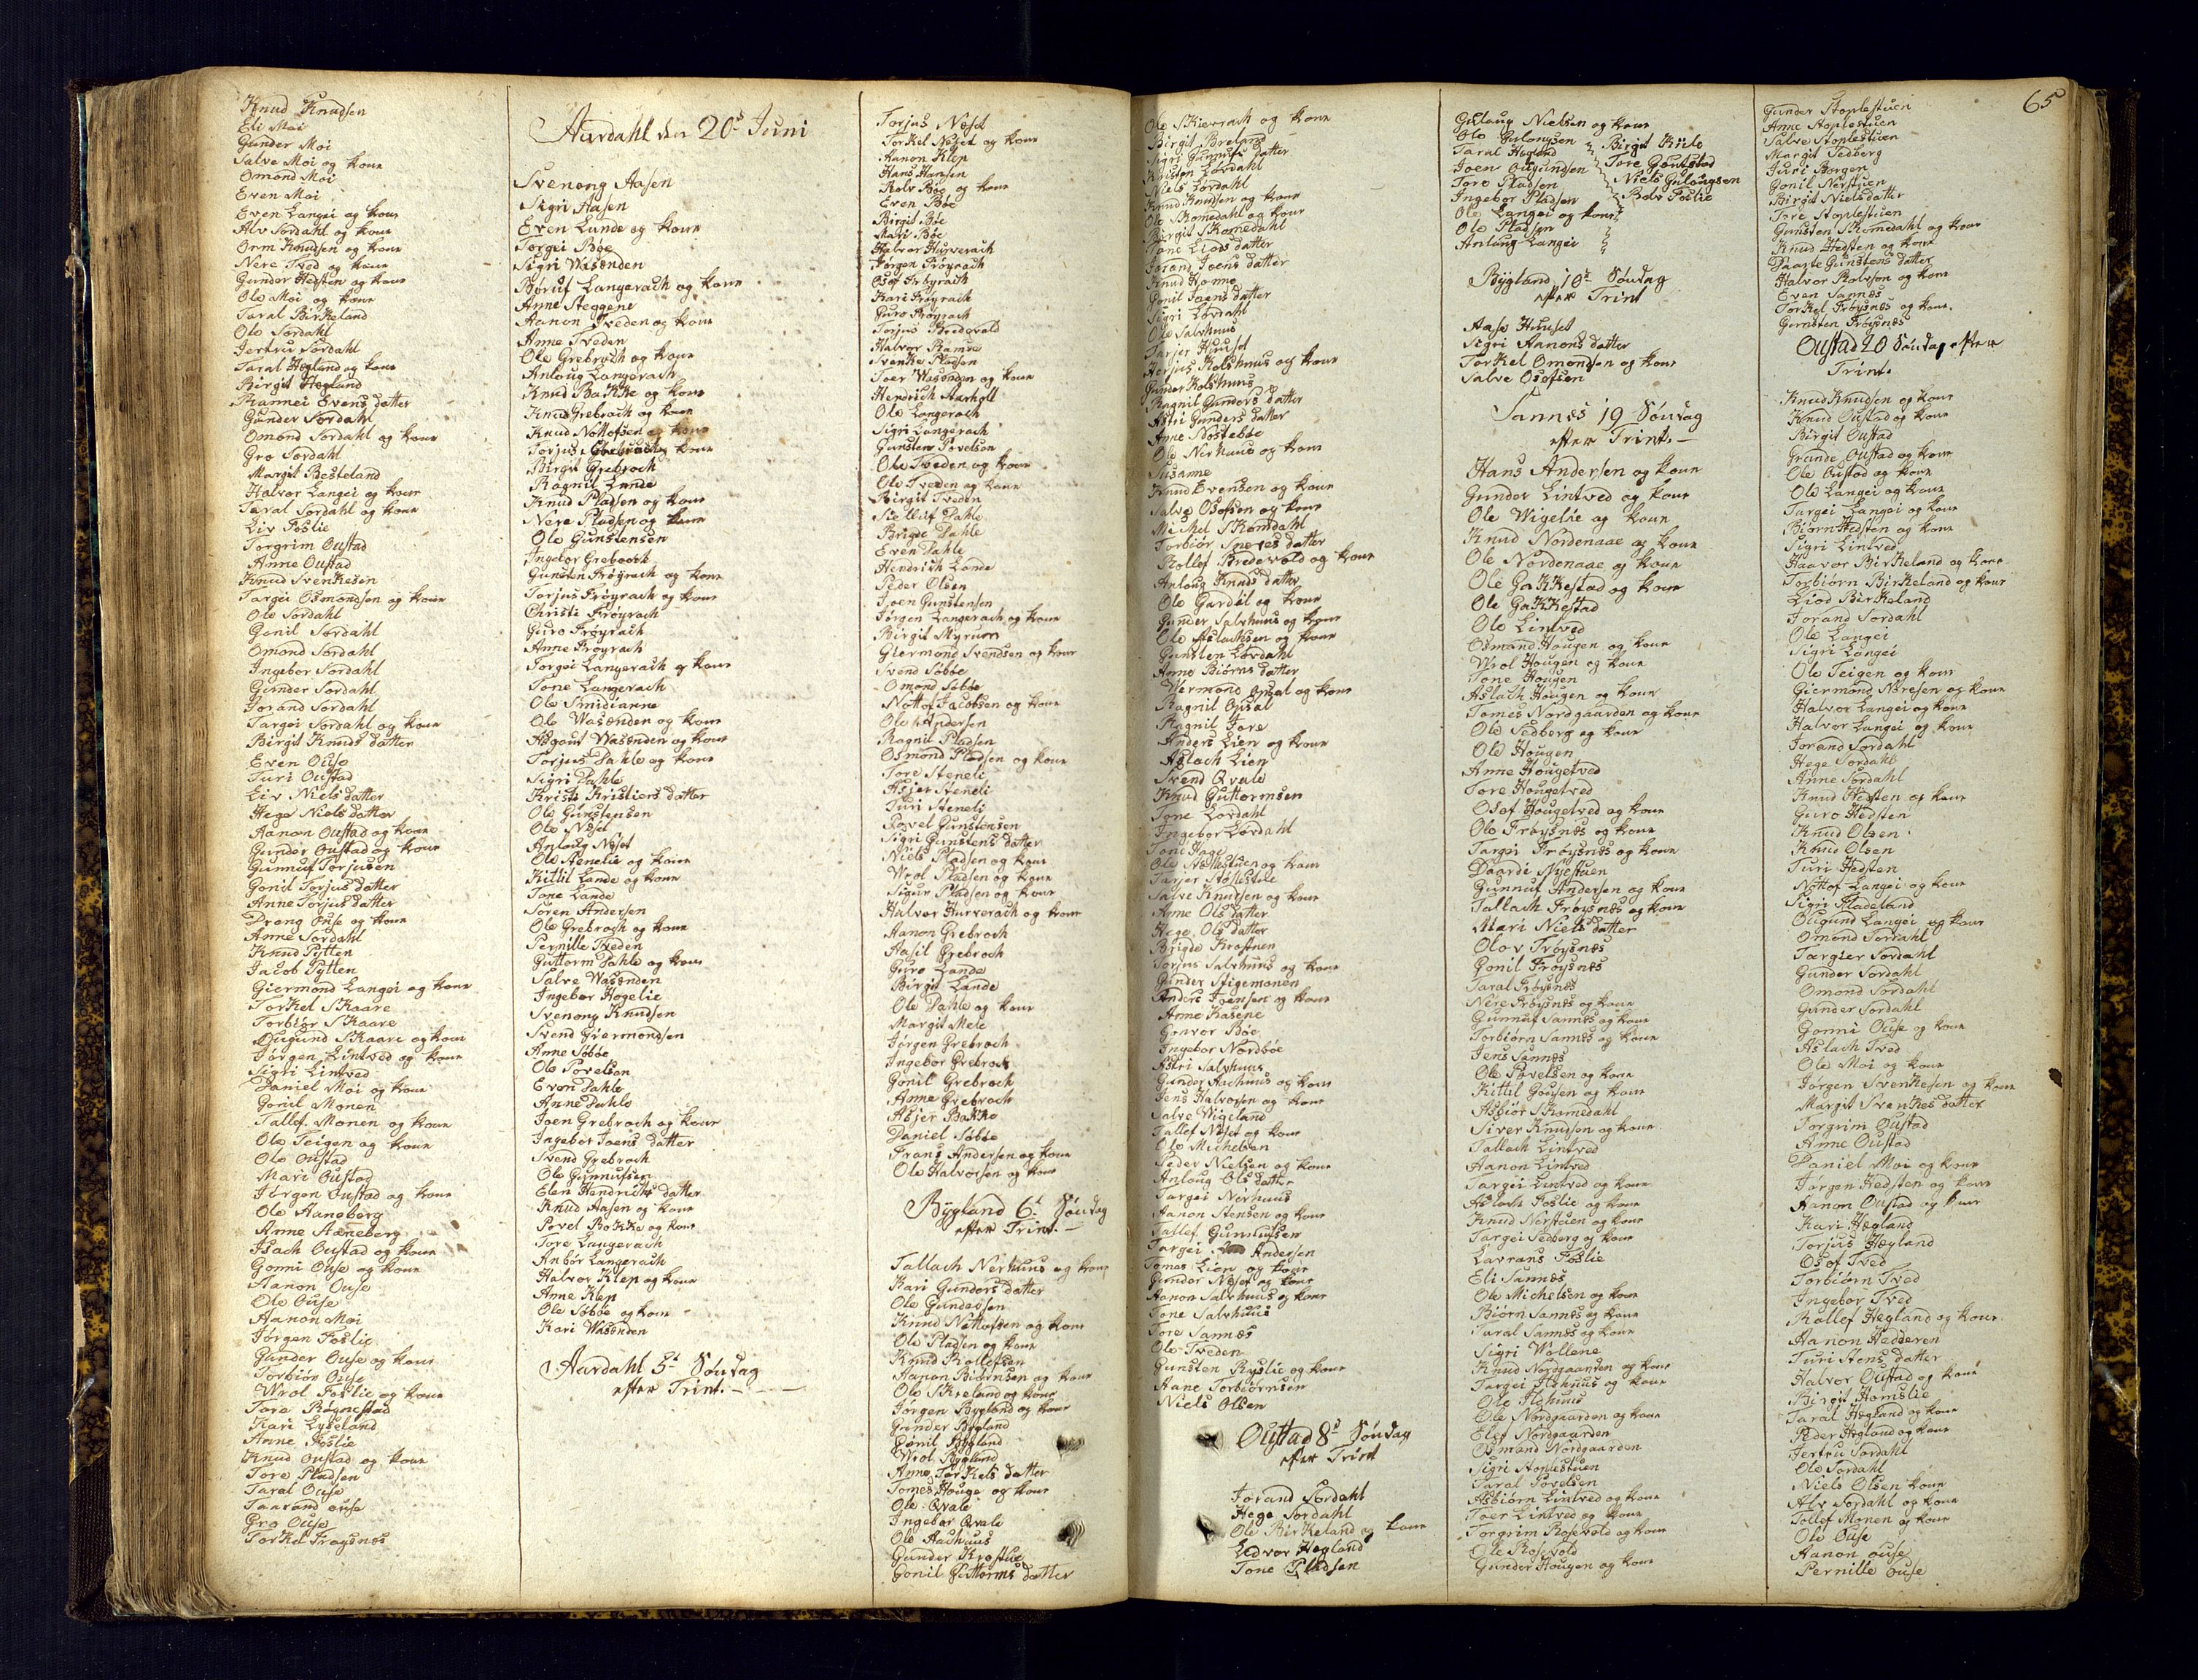 Knud Knudsen
Eli Moi
Gunder Moi
Salve Moi og kone
Omond Moi
Even Moi
Even Langei og kone
Alv Sordahl og kone
Orm Knudsen og kone
Nere Tved og kone
Gunder Hedsten og kone
Ole Moi og kone
Taral Birkeland
Ole Sordahl
Jertru Sordahl
Taral Hegland og kone
Birgit Hegland
Rannei Evens datter
Gunder Sordahl
Omond Sordahl og kone
Gro Sordahl
Margit Besteland
Halvor Langei og kone
Taral Sordahl og kone
Liv Foslie
Torgrim Oustad
Anne Oustad
Knud Svenkesen
Targei Osmondsen og kone
Ole Sordahl
Gonil Sordahl
Omond Sordahl
Ingebor Sordahl
Gunder Sordahl
Jorand Sordahl
Targei Sordahl og kone
Birgit Knuds datter
Even Ouse
Turi Oustad
Liv Niels datter
Hege Niels datter
Aanon Oustad og kone
Gunder Oustad og kone
Gunnuf Torjusen
Gonil Torjus datter
Anne Torjus datter
Drong Ouse og kone
Anne Sordahl
Knud Pytten
Jacob Pytten
Giermond Langei og kone
Torkel Skaare
Torbiør Skaare
Ougund Skaare og kone
Jørgen Lintved og kone
Sigri Lintved
Daniel Moi og kone
Gonil Monen
Tallef Monen og kone
Ole Teigen og kone
Ole Oustad
Mari Oustad
Jørgen Oustad og kone
Ole Aaneberg
Anne Aaneberg
Isach Oustad og kone
Gonni Ouse og kone
Aanon Ouse
Ole Ouse
Aanon Moi
Jørgen Foslie
Gunder Ouse og kone
Torbiør Ouse
Wrol Foslie og kone
Tore Røgnestad
Kari Lyseland
Anne Foslie
Knud Oustad og kone
Tore Pladsen
Taral Ouse
Taarand Ouse
Gro Ouse
Torkel Frøysnes
Aardahl den 20d Juni
Svenong Aasen
Sigri Aasen
Even Lande og kone
Torgei Bøe
Sigri Wasenden
Boruf Langerach og kone
Anne Steggene
Aanon Tveden og kone
Anne Tveden
Ole Grebroch og kone
Anlaug Langerach
Knud Bakke og kone
Knud Grebroch og kone
Knud Nottofsen og kone
Torjus Grebroch og kone
Birgit Grebroch
Ragnil Lande
Knud Pladsen og kone
Nere Pladsen og kone
Ole Gunstensen
Ingebor Grebroch
Gunsten Frøyrach og kone
Torjus Frøyrach og kone
Christi Frøyrach
Guro Frøyrach
Anne Frøyrach
Torgei Langerach og kone
Tone Langerach
Ole Smidianne
Ole Wasenden og kone
Asgout Wasenden og kone
Torjus Dahle og kone
Sigri Dahle
Kristi Kristiers datter
Ole Gunstensen
Ole Neset
Anlaug Neset
Ole Stenelie og kone
Kittil Lande og kone
Tone Lande
Soren Andersen
Ole Grebroch og kone
Pernille Tveden
Guttorm Dahle og kone
Salve Wasenden
Ingebor Hogelie
Svenong Knudsen
Svend Giermondsen
Anne Søbøe
Ole Povelsen
Even Dahle
Anne Dahle
Joen Grebroch og kone
Ingebor Joens datter
Svend Grebroch
Ole Gunnufsen
Elen Hendrichs datter
Knud Aasen og kone
Povel Bokke og kone
Tore Langerach
Anbor Langerach
Halvor Klep og kone
Anne Klep
Ole Søbøe og kone
Kari Wasenden
Aardahl 5d Søndag
efter Trint.
Torjus Neset
Torkel Neset og kone
Aanon Klep
Hans Hansen
Rolv Bøe og kone
Even Bøe
Birgit Bøe
Mari Bøe
Halvor Hurverach
Jørgen Frøyrach
Osof Frøyrach
Kari Frøyrach
Guro Frøyrach
Torjus Bredevold
Halvor Ramse
Svenke Pladsen
Toer Wasenden og kone
Hendrich Aarholt
Ole Langerach
Sigri Langerach
Gunsten Povelsen
Ole Tveden og kone
Ole Tveden og kone
Birgit Tveden
Siellief Dahle
Brigde Dahle
Even Dahle
Hendrich Lande
Peder Olsen
Joen Gunstensen
Jørgen Langerach og kone
Birgit Myrum
Giermond Svendsen og kone
Svend Søbøe
Omond Søbøe
Nottof Jacobsen og kone
Ole Andersen
Ragnil Pladsen
Osmond Pladsen og kone
Tore Steneli
Asjer Steneli
Turi Steneli
Povel Gunstensen
Sigri Gunstens datter
Niels Pladsen og kone
Wrol Pladsen og kone
Sigur Pladsen og kone
Halvor Hurverach og kone
Aanon Grebroch
Aasil Grebroch
Guro Lande
Birgit Lande
Ole Dahle og kone
Margit Mele
Jørgen Grebroch
Ingebor Grebroch
Gonil Grebroch
Anne Grebroch
Asjer Bakke
Daniel Søbøe
Frans Andersen og kone
Ole Halvorsen og kone
Bygland 6d Søndag
efter Trint.
Tallach Nerhuus og kone
Kari Gunders datter
Ole Gundersen
Knud Nottofsen og kone
Ole Pladsen og kone
Knud Rollefsen
Aanon Biørnsen og kone
Ole Skreland og kone
Jørgen Bygland og kone
Gunder Bygland
Gonil Bygland
Wrol Bygland
Anne Torkels datter
Tomes Houge og kone
Ole Qvale
Ingebor Qvale
Ole Aachuus
Gunder Krostue
Gonil Guttorms datter
65
Ole Skierach og kone
Birgit Breland
Sigri Gunnufs datter
Kristen Lordahl
Niels Lordahl
Knud Knudsen og kone
Ole Skomedahl og kone
Birgit Skomedahl
Tone Liods datter
Jorand Joens datter
Knud Homme
Gonil Joens datter
Sigri Lordahl
Ole Salvhuus
Tarjer Huuset
Torjus Holshuus og kone
Gunder Holshuus
Ragnil Gunders datter
Astri Gunders datter
Anne Nostebøe
Ole Nerhuus og kone
Susanne
Knud Evensen og kone
Salve Osofsen og kone
Michel Skomdahl
Torbiør Sneres datter
Rollef Bredevold og kone
Anlaug Knuds datter
Ole Gardøl og kone
Gunder Salvhuus og kone
Ole Aslachsen og kone
Gunsten Lordahl
Anne Biørns datter
Wermond Opsal og kone
Ragnil Opsal
Ragnil Fore
Anders Lien og kone
Aslach Lien
Svend Qvale
Knud Guttormsen
Tone Lordahl
Ingebor Lordahl
Toni Hage
Salve Knudsen og kone
Anne Ols datter
Hege Ols datter
Brigde Krostuen
Torjus Salvhuus og kone
Gunder Stigemonen
Anders Joensen og kone
Anne Kasene
Gonvor Bøe
Ingebor Nordbøe
Astri Salvhuus
Gunder Aachuus og kone
Jens Halvorsen og kone
Salve Wigeland
Tallef Neset og kone
Ole Michelsen
Peder Nielsen og kone
Anlaug Ols datter
Targei Nerhuus
Aanon Stensen og kone
Tallef Gunnufsen
Targei Andersen
Tomas Lien og kone
Gunder Neset og kone
Aanon Salvhuus og kone
Tone Salvhuus
Tore Sannes
Ole Tveden
Gunsten Ryslie og kone
Aane Torbiørnsen
Niels Olsen
Oustad 8d Søndag
efter Trint
Jorand Sordahl
Hege Sordahl
Ole Birkeland og kone
Ledvor Hegland
Tone Pladsen
Gulaug Nielsen og kone
Ole Gulaugsen
Taral Hegland
Joen Ougundsen
Tore Pladsen
Ingebor Pladsen
Ole Langei og kone
Ole Pladsen
Anlaug Langei
Birgit Kiile
Tore Goutestad
Niels Gulaugsen
Rolv Foslie
Bygland 10d Søndag
efter Trint
Aase Huuset
Sigri Aanons datter
Torkel Omondsen og kone
Salve Osofsen
Sannes 19 Søndag
efter Trint.
Hans Andersen og kone
Gunder Lintved og kone
Ole Wigelie og kone
Knud Nordenaae og kone
Ole Nordenaae og kone
Ole Gakkestad og kone
Ole Gakkestad
Ole Lintved
Osmand Hougen og kone
Wrol Hougen og kone
Tone Hougen
Aslach Hougen og kone
Tomes Nordgaarden og kone
Ole Sedberg og kone
Ole Hougen
Anne Hougetved
Tore Hougetved
Osof Hougetved og kone
Ole Frøysnes og kone
Targei Frøysnes og kone
Daardi Nyestuen
Gunnuf Andersen og kone
Tallach Frøysnes og kone
Mari Niels datter
Olov Frøysnes
Gonil Frøysnes
Taral Frøysnes
Nere Frøysnes og kone
Gunnuf Sannes og kone
Torbiørn Sannes og kone
Jens Sannes
Ole Povelsen og kone
Kittil Goutsen og kone
Asbiør Skomedahl
Siver Knudsen og kone
Tallach Lintved
Aanon Lintved
Targei Lintved og kone
Aslach Foslie og kone
Knud Nerstuen og kone
Targei Sedberg og kone
Lavrans Foslie
Eli Sannes
Ole Michelsen og kone
Biørn Sannes og kone
Taral Sannes og kone
Sigri Wollene
Knud Nordgaarden og kone
Ole Nordgaarden og kone
Elef Nordgaarden
Osmand Nordgaarden
Sigri Stoplestuen
Taral Povelsen
Asbiørn Lintved og kone
Toer Lintved og kone
Torgrim Rosevold og kone
Ole Rosevold
Gunder Hougen og kone
Gunder Stoplestuen
Anne Stoplestuen
Salve Stoplestuen
Margit Sedberg
Juri Borgen
Gonil Nerstuen
Birgit Niels datter
Tore Stoplestuen
Gunsten Skomedahl og kone
Knud Hedsten og kone
Daarte Gunstens datter
Halvor Rolvsen og kone
Even Sannes
Torkel Frøysnes og kone
Gunsten Frøysnes
Oustad 20 Søndag efter
Trint.
Knud Knudsen og kone
Knud Oustad og kone
Birgit Oustad
Grunde Oustad og kone
Ole Oustad og kone
Ole Langei og kone
Targei Langei og kone
Biørn Hedsten og kone
Sigri Lintved
Haavor Birkeland og kone
Torbiørn Birkeland og kone
Liod Birkeland
Jorand Sordahl
Ole Langei
Sigri Langei
Ole Teigen og kone
Giermond Neresen og kone
Halvor Langei og kone
Halvor Langei og kone
Jorand Sordahl
Hege Sordahl
Anne Sordahl
Knud Hedsten og kone
Guro Hedsten
Knud Olsen
Knud Olsen
Turi Hedsten
Nottof Langei og kone
Sigri Fladeland
Ougund Langei og kone
Omond Sordahl
Targier Sordahl
Gunder Sordahl
Omond Sordahl
Gunder Sordahl
Gonni Ouse og kone
Aslach Tved
Ole Moi og kone
Jørgen Svenkesen og kone
Margit Svenkes datter
Torgrim Oustad
Anne Oustad
Daniel Moi og kone
Jørgen Hedsten og kone
Aanon Oustad og kone
Kari Hegland
Torjus Hegland
Osof Tved
Torbiørn Tved
Ingebor Tved
Rollef Hegland og kone
Aanon Hedderen
Turi Stens datter
Halvor Oustad og kone
Birgit Homslie
Taral Hegland og kone
Peder Hegland og kone
Jertru Sordahl
Ole Sordahl
Niels Olsen kone
Alv Sordahl og kone
Tollef Monen og kone
Ole Ouse
Aanon Ouse
Pernille Ouse